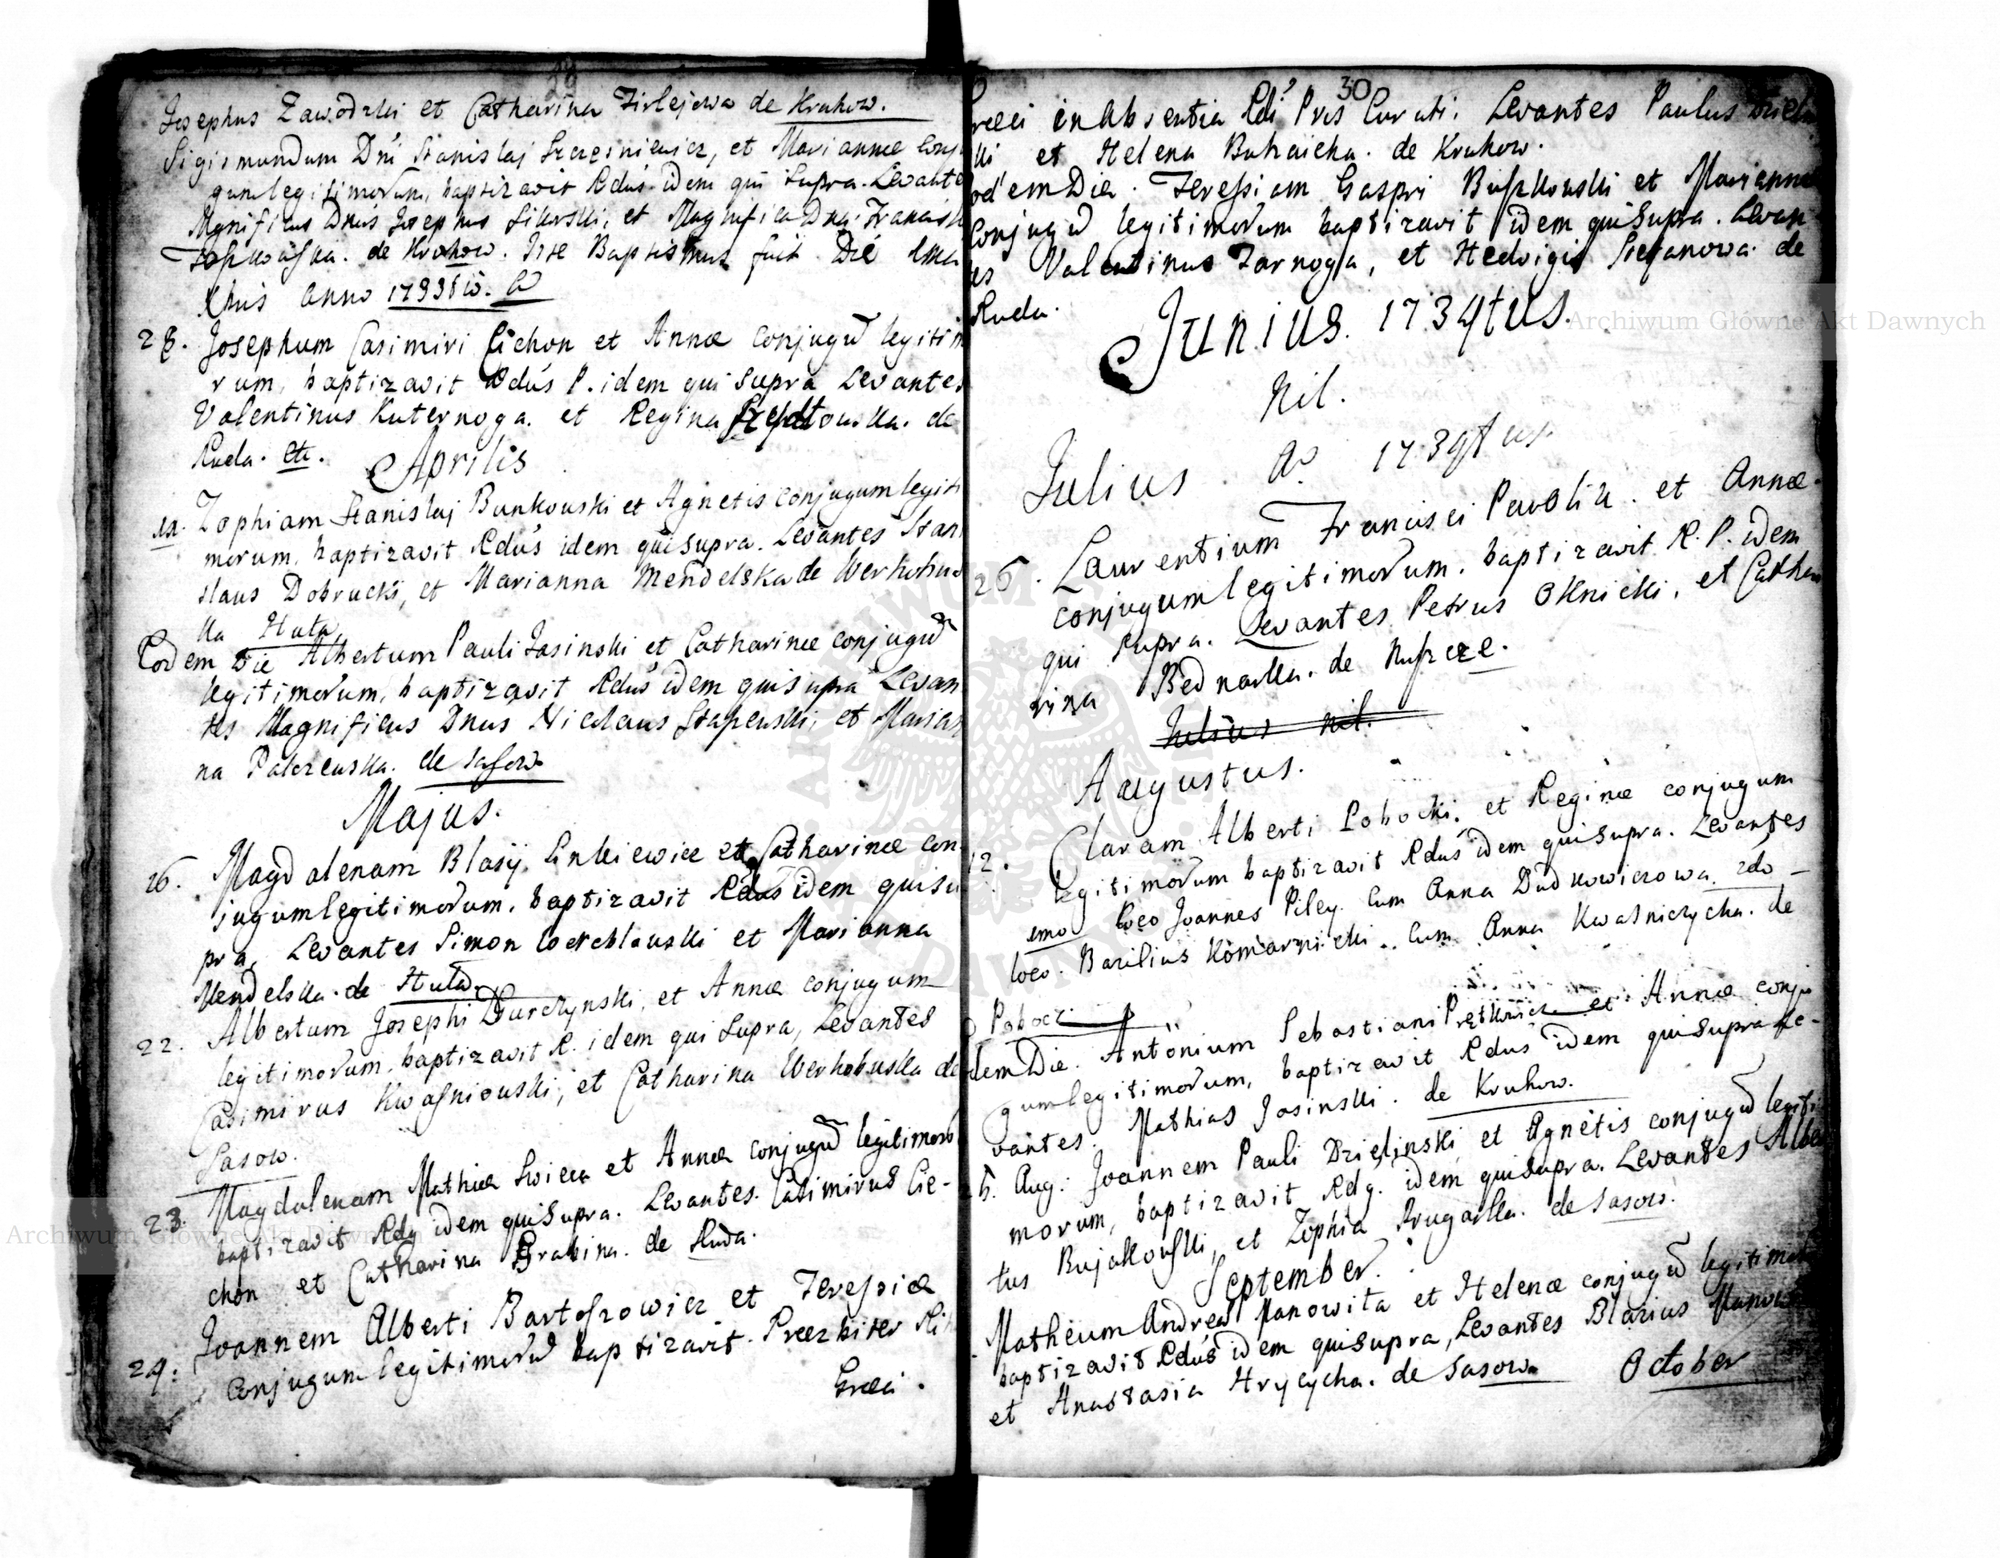 29
Josephus Zawodzki et Catharina Firlejowa de Kruhow.
Sigismundum Dni Stanislaj Szczesniewicz, et Mariannæ Conj
gum legitimorum, baptizavit Rdus idem qui Supra. Levante
Magnificus Dnus Josephus Sikorski, et Magnifica Dna Francis
de Kruhow. Iste Baptismus fuit Die
Xbris Anno
28. Josephum Casimiri Cichon et Annæ conjugū legitim
rum, baptizavit Rdus P. idem qui supra Levantes
Valentinus Kuternoga. et Regina de
Ruda. etc.
Aprilis
Zophiam Stanislaj Bunkouski et Agnetis conjugum legiti
morum, baptizavit Rdus idem qui supra. Levantes Stani
slaus Dobrucki, et Marianna Mendelska de Werhobus
ka Huta
Eodem Die Albertum Pauli Jasinski et Catharinæ conjugū
legitimorum, baptizavit Rdus idem qui supra Levan
tes Magnificus Dnus Nicolaus Stapeuski, et Marian
na Palczeuska. de Sasow
Majus.
16. Magdalenam Blasij Linkiewicz et Catharinæ con
jugum legitimorum, baptizavit Rdus idem qui su
pra, Levantes Simon et Marianna
Mendelska de Huta.
22. Albertum Josephi Durczynski, et Annæ conjugum
legitimorum, baptizavit R. idem qui supra, Levantes
Casimirus Kwasniouski, et Catharina Werhobuska de
Sasow.
23. Magdalenam Mathiæ Swieca et Annæ conjugū legitimoru
baptizavit Rdq idem qui supra. Levantes. Casimirus Cie-
chon et Catharina Grabina. de Ruda.
24. Joannem Alberti Bartoszowicz et Teressiæ
Conjugum legitimorū baptizavit. Præzbiter Rit
Græci.
30
Græci in Absentia Rdi Pris Curati. Levantes Paulus Dzieli
ski et Helena Buhaicha. de Kruhow.
odem Die. Teressiam Gaspri Buszkouski et Mariannæ
Conjugū legitimorum baptizavit idem qui supra. Levan
es Valentinus Tarnoga, et Hedvigis Stefanowa. de
Ruda.
Junius. 1734tus.
Nil.
Julius Ao 1734tus.
26. Laurentium Francisci Pavolik. et Annæ
conjugum legitimorum. baptizavit R. P. idem
qui supra. Levantes Petrus Oknicki, et Catha
rina Bednarka. de Nuszcze.
Julius nil.
Augustus.
12. Claram Alberti Pobocki, et Reginæ conjugum
legitimorum baptizavit Rdus idem qui supra. Levantes
emo loco Joannes Piley. Cum Anna Dudkowiczowa. 2do
loco. Basilius Komarnicki. Cum Anna Kwasniczycha. de
Pobocz
dem Die. Antonium Sebastiani et Annæ conju
gum legitimorum, baptizavit Rdus idem qui supra Le-
vantes. Mathias Jasinski. de Kruhow.
Aug. Joannem Pauli Dzielinski, et Agnetis conjugū legiti
morum, baptizavit Rdq. idem qui supra. Levantes Alber
tus Bujakouski, et Zophia Brugarka. de Sasow.
September.
Matheum Andreæ Manowita et Helenæ conjugū legitimoru
baptizavit Rdus idem qui supra, Levantes Blasius
et Anastasia Hrycycha. de Sasowa October
Archiwum Główne Akt Dawnych
Archiwum Główne Akt Dawnych